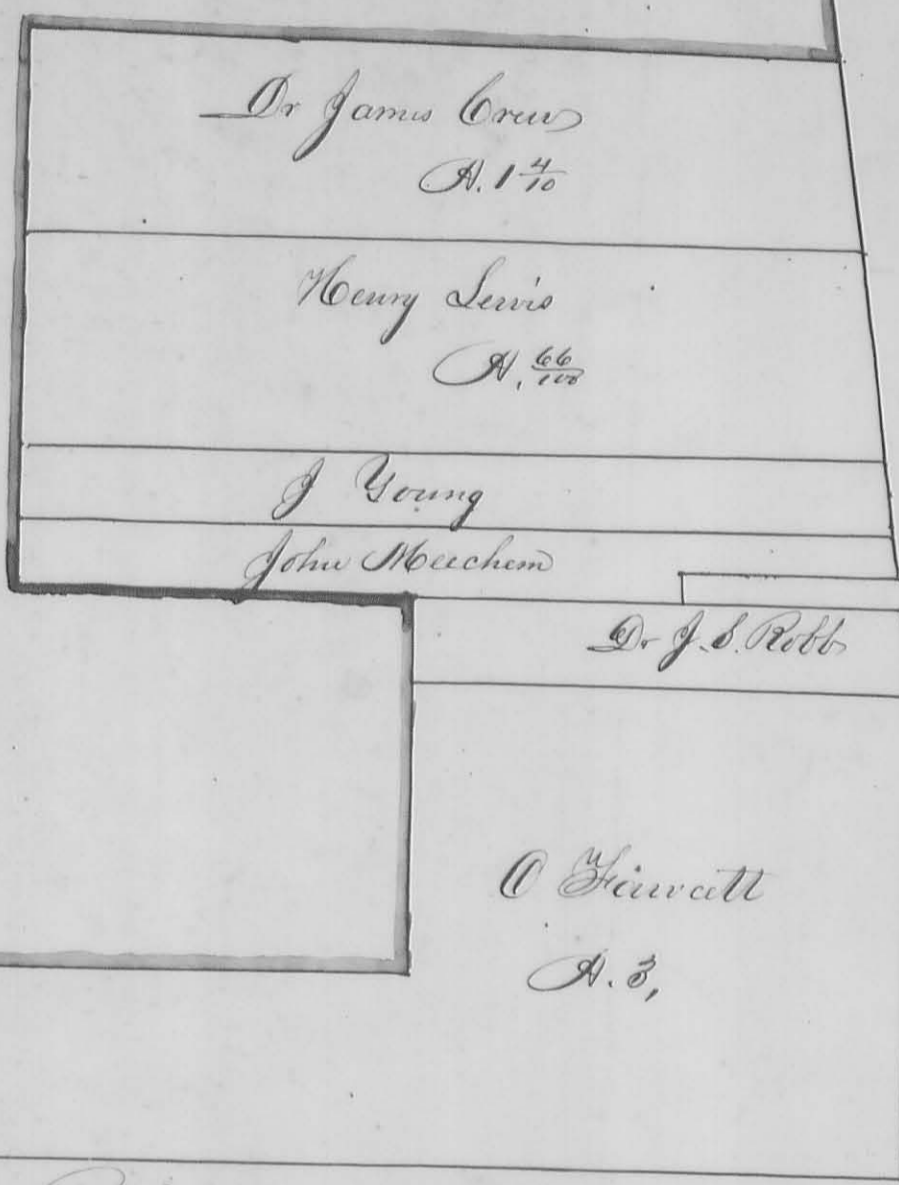 Dr James Crews
A. 1 4/10
Henry Lewis
A. 66/100
J Young
John Meechem
Dr J. S. Robb
O Fawcatt
A. 3,